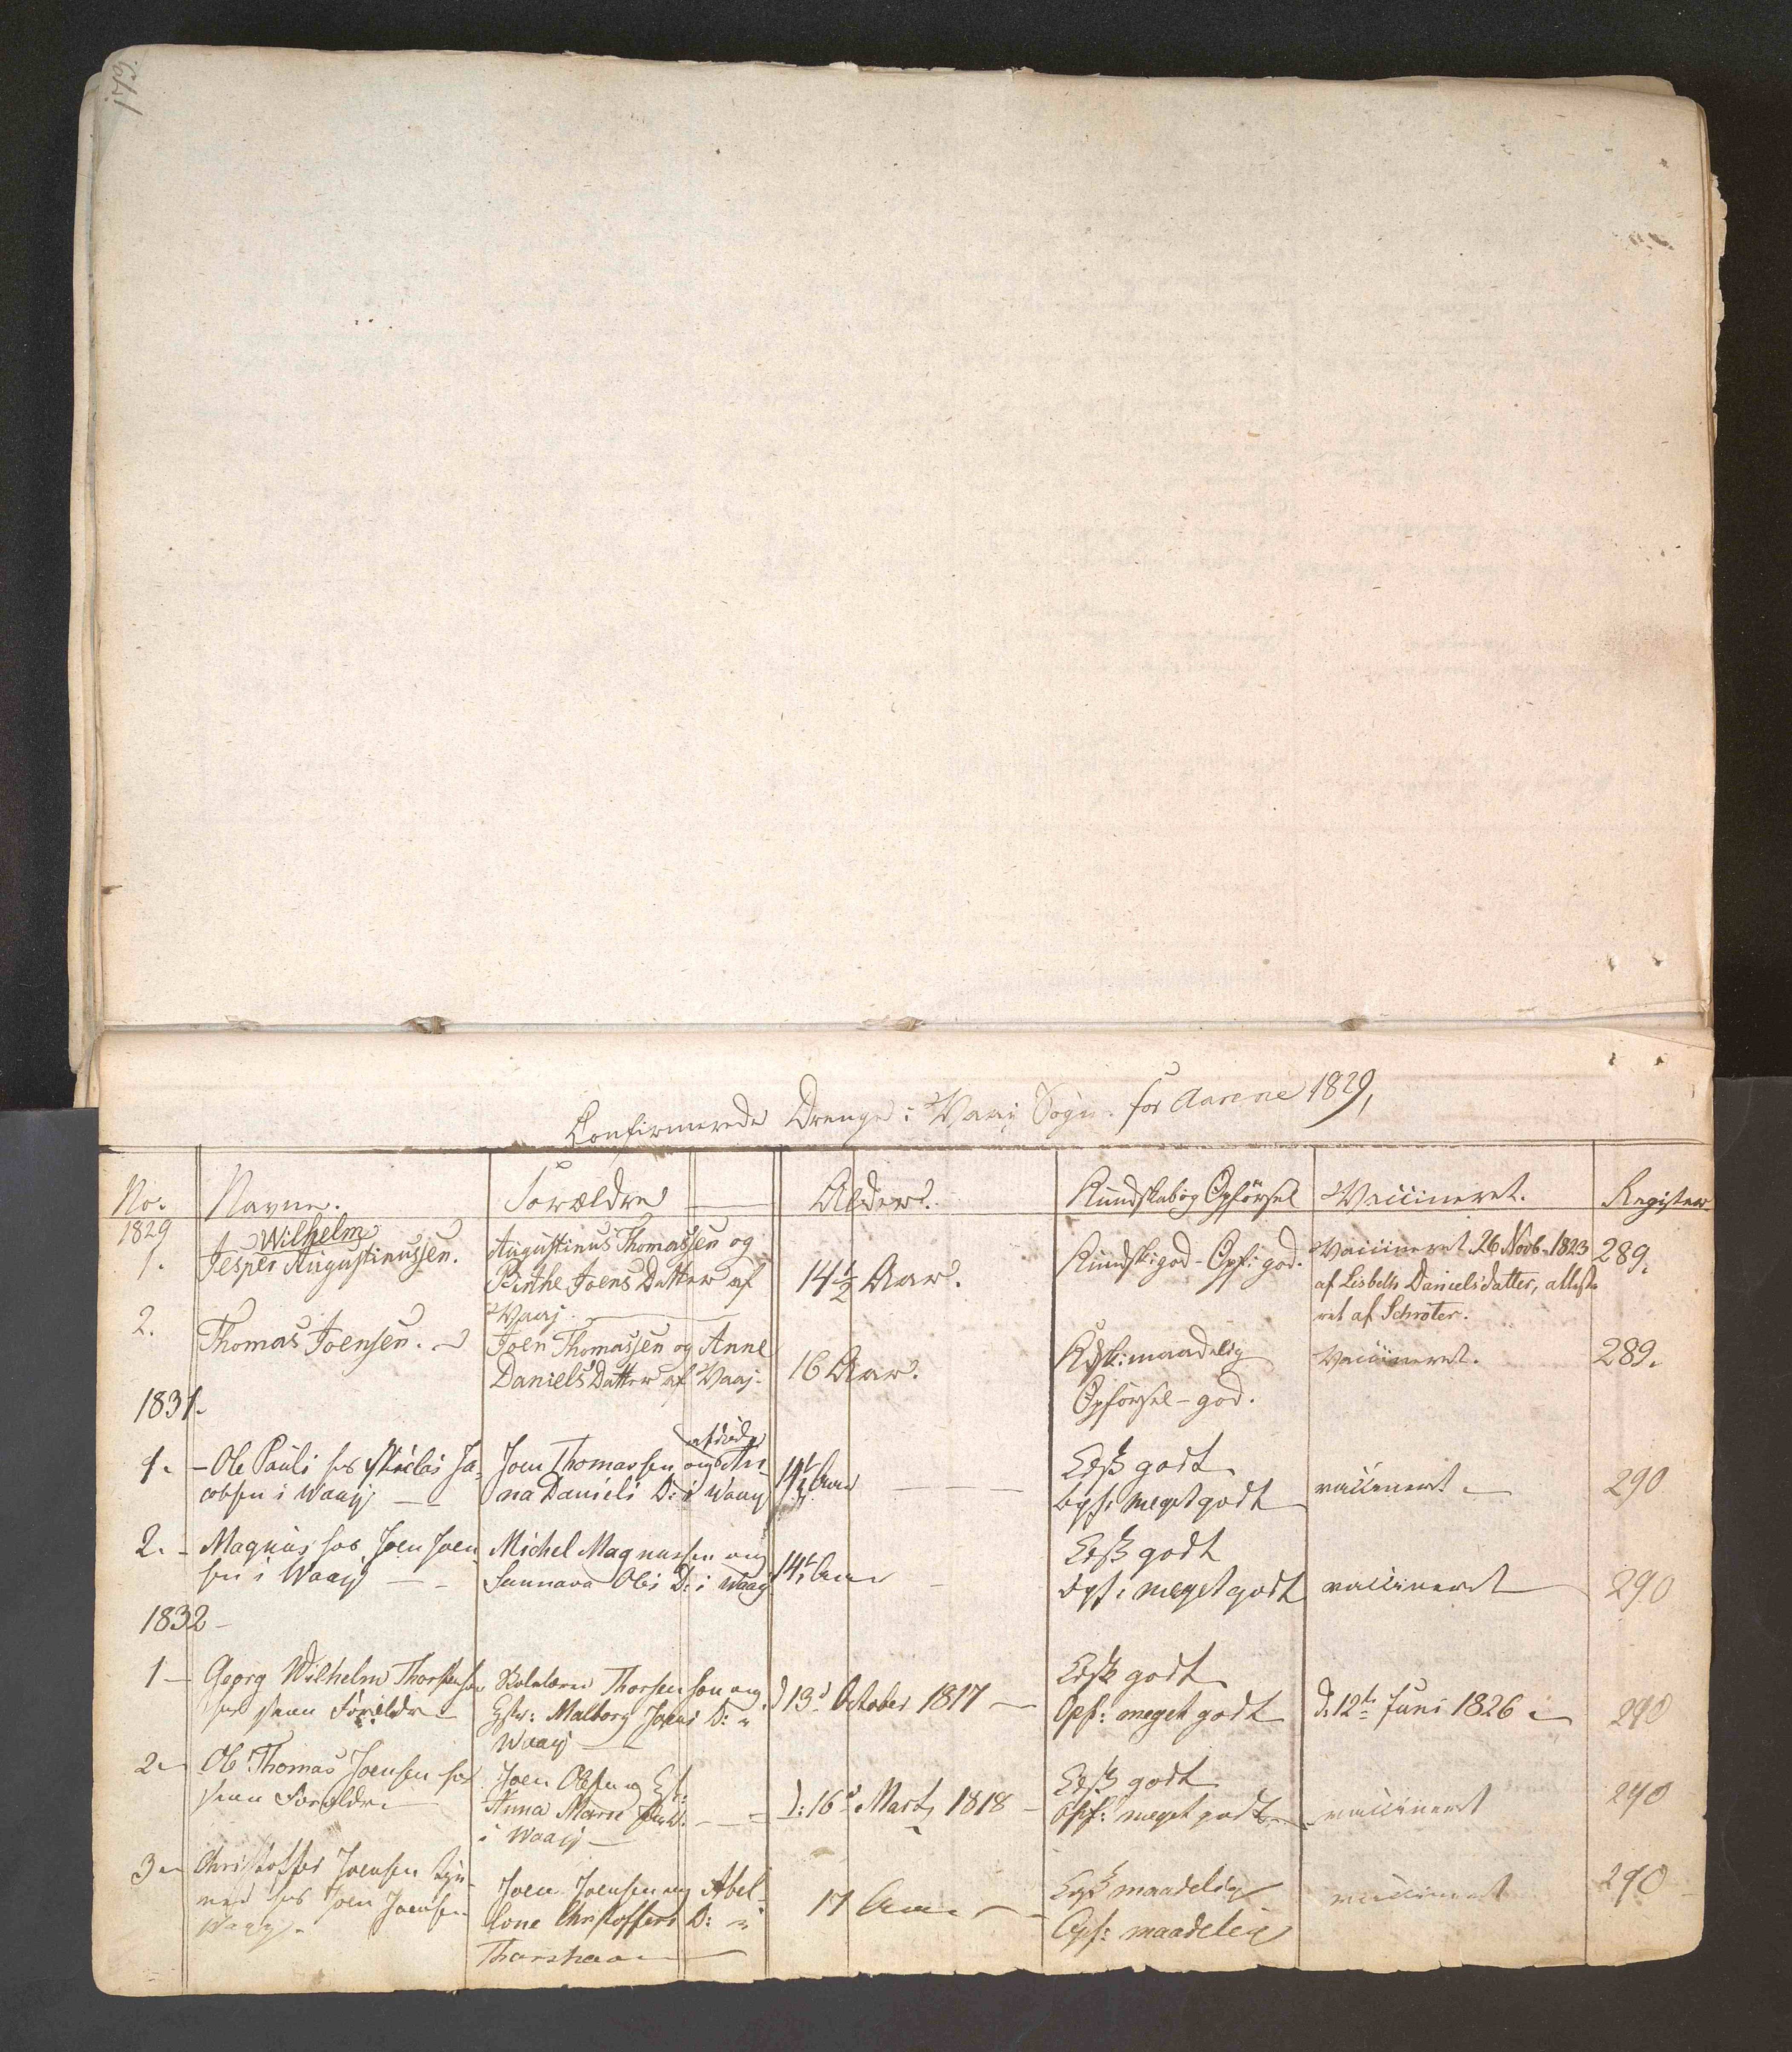 173.
Confirmerede Drenge i Vaaj Sogn for Aarene 1829,
No. Navne. Forældre Alder. Kundskab og Opförsel Vaccineret. Register
1829
1. Jesper Wilhelm Augustinussen. Augustinus Thomassen og Birthe Joens Datter af Vaaj. 14½ Aar. Kundsk: god - Opf: god. Vaccineret 26 Novb. 1823 af Lisbeth Danielsdatter, attesteret af Schröter. 289.
2. Thomas Joensen. Joen Thomassen og Anne Daniels Datter af Vaaj. 16 Aar. Kdsk: maadelig Opförsel - god. Vaccineret. 289.
1831.
1. - Ole Pauli hos Ja=
cobsen i Waaij Joen Thomassen og afdøde An=
na Daniels D: i Waaij 14½ Aar godt Opf: meget godt vaccineret 290
2. - Magnus hos Joen Joen
sen i Waaij Michel Magnussen og Sunnava Oles D: i Waaij 14 Aar godt Opf: meget godt vaccineret 290
1832
1 - Georg Wilhelm Thorstensen hos sine Forældre Thorstenson og Hstr: Malborg D: i Waaij d 13d October 1817 godt Opf: meget godt d: 12te Juni 1826 290
2 Ole Thomas Joensen hos sine Forældre Joen Olesen og Hst: Anna Marie i Waaij d: 16d Marts 1818 godt Opf: meget godt vaccineret 290
3 Christoffer Joensen hos Joen Joensen Waaij. Joen Joensen og Abel=
lone Christoffers D: i Thorshavn 17 Aar maadelig Opf: maadelig vaccineret 290